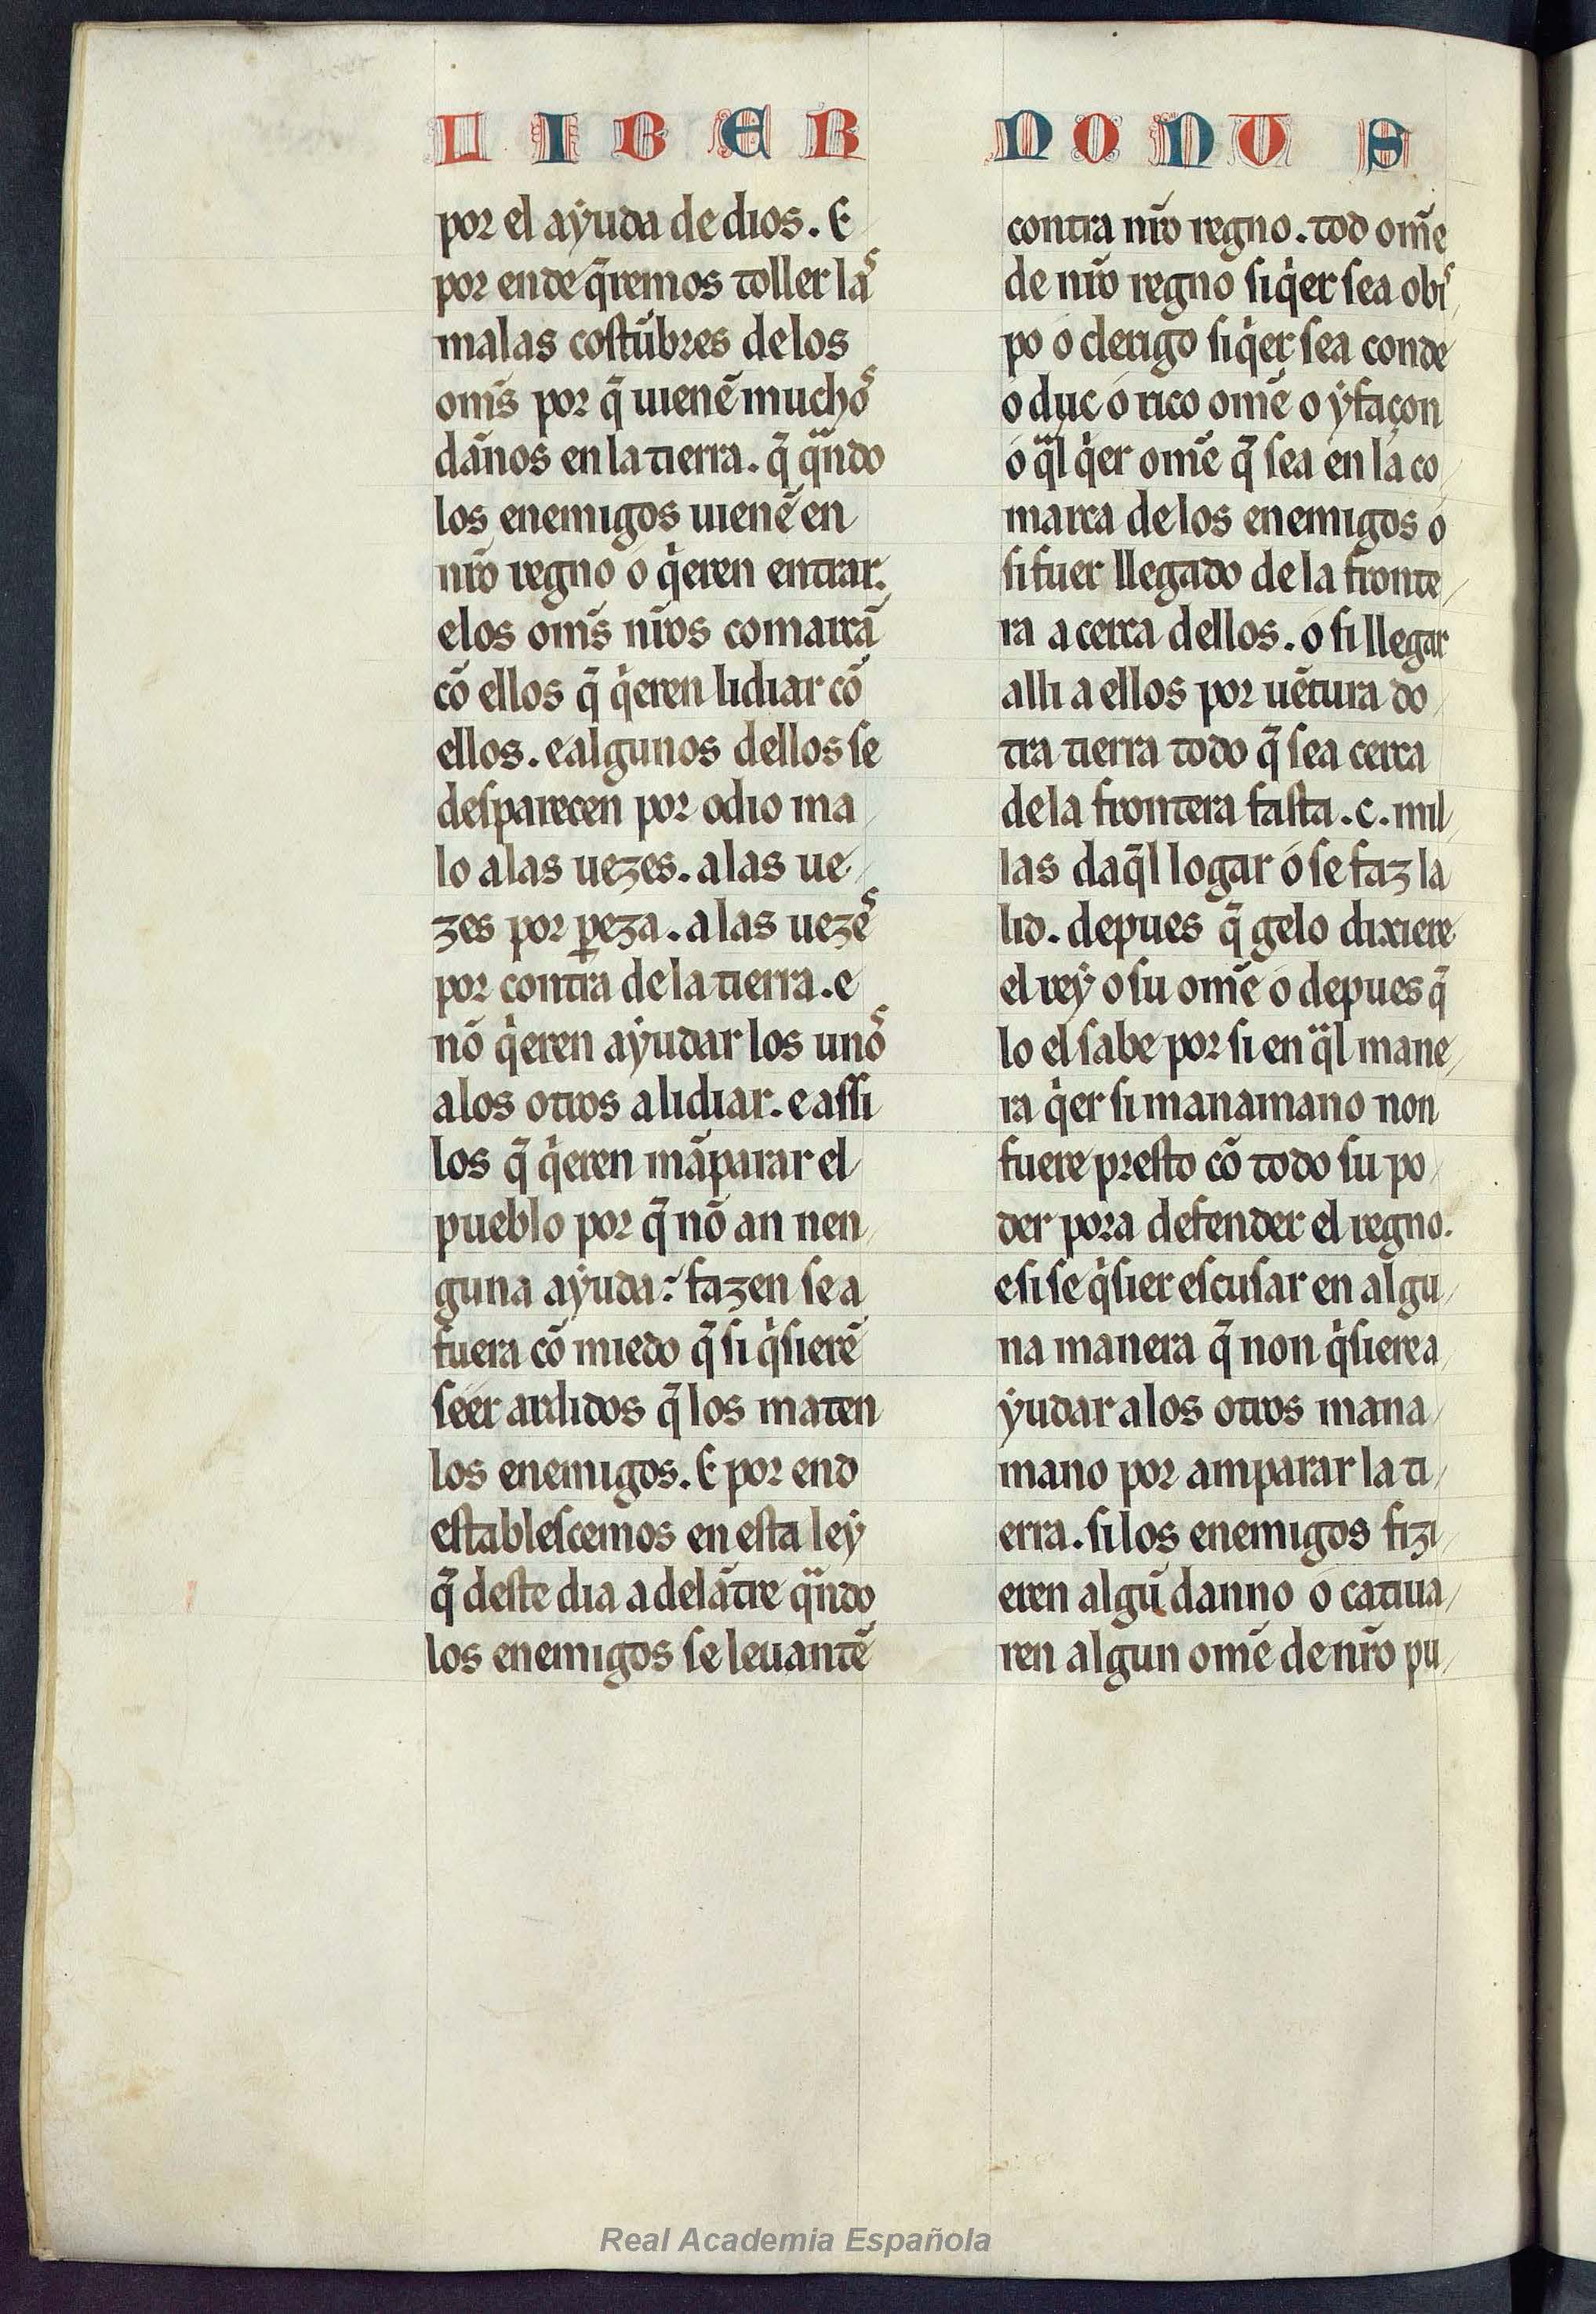 LIBER NONUS
por el aẏuda de dios. E
por ende q̃remos toller las
malas costũbres delos
om̃s por q̃ uienẽ muchos
dãnos en la tierra. q̃ qͣndo
los enemigos uienẽ en
nr̃o regno o qͥeren entrar.
elos om̃s nr̃os comarcã
cõ ellos q̃ qͥeren lidiar cõ
ellos. e algunos dellos se
desparecen por odio ma
lo alas uezes. alas ue
zes por ꝑeza. alas uezes
por contra dela tierra. e
nõ qͥeren aẏudar los unos
alos otros alidiar. e assi
los q̃ qͥeren mãparar el
pueblo por q̃ nõ an nen
guna aẏuda: fazen se a
fuera cõ miedo q̃ si qͥsierẽ
seer ardidos q̃ los maten
los enemigos. E por end
establescemos en esta leẏ
q̃ deste dia adelãtre qͣndo
los enemigos se leuantẽ
contra nr̃o regno. tod om̃e
de nr̃o regno siqͥer sea obis
po o clerigo siqͥer sea conde
o duc o rico om̃e o ẏfaçon
o qͣl qͥer om̃e q̃ sea en la co
marca delos enemigos o
si fuer llegado dela fronte
ra acerca dellos. o si llegar
alli a ellos por uẽtura do
tra tierra todo q̃ sea cerca
dela frontera fasta .c. mil
las daq̃l logar o se faz la
lid. depues q̃ gelo dixiere
el reẏ o su om̃e o depues q̃
lo el sabe por si en qͣl mane
ra qͥer si manamano non
fuere presto cõ todo su po
der pora defender el regno.
e si se qͥsier escusar en algu
na manera q̃ non qͥsiere a
ẏudar alos otros mana
mano por amparar la ti
erra. si los enemigos fizi
eren algũ danno o catiua
ren algun om̃e de nr̃o pu
Real Academia Española